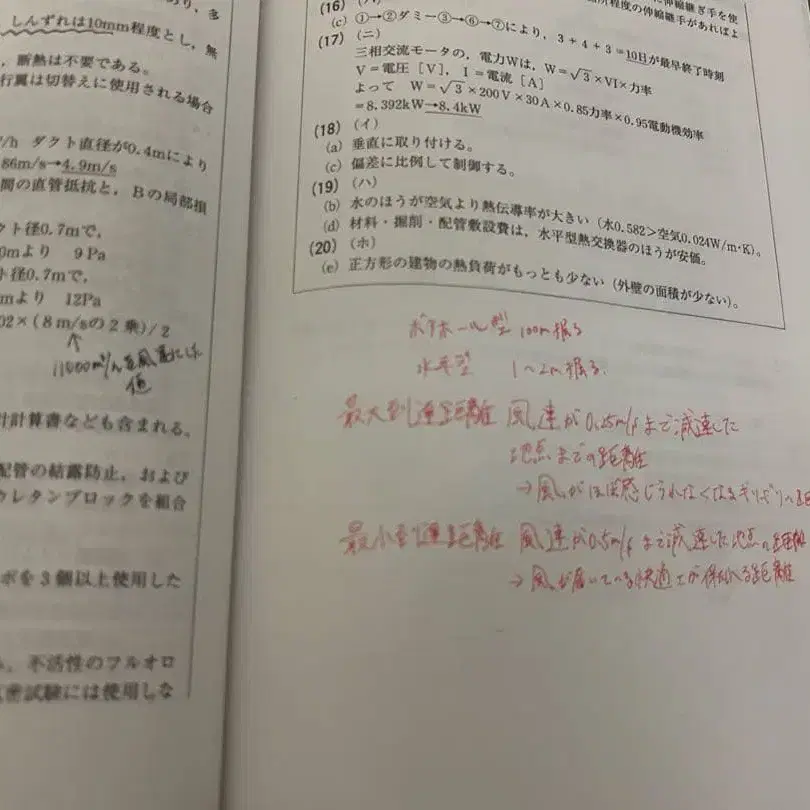 しんずれは10mm程度とし、無
，断熱は不要である。
行翼は切替えに使用される場合
/h ダクト直径が0.4mにより
86m/s→4.9m/s
間の直管抵抗と，Bの局部損
クト径0.7mで，
0mより 9Pa
ト径0.7mで，
mより 12Pa
02×(8m/sの2乗)/2
↑
11000m³/hを風速にした
値
計計算書なども含まれる。
配管の結露防止，および
ウレタンブロックを組合
ボを3個以上使用した
，不活性のフルオロ
密試験には使用しな
(16)
(c) ①→②ダミー③→⑥→⑦により，3＋4＋3＝10日が最早終了時刻
(17) (ニ)
三相交流モータの，電力Wは，W＝√3×VI×力率
V＝電圧［V］，I＝電流［A］
よって W＝√3×200V×30A×0.85力率×0.95電動機効率
＝8.392kW→8.4kW
(18) (イ)
(a) 垂直に取り付ける。
(c) 偏差に比例して制御する。
(19) (ハ)
(b) 水のほうが空気より熱伝導率が大きい（水0.582＞空気0.024W/m･K）。
(d) 材料・掘削・配管敷設費は，水平型熱交換器のほうが安価。
(20) (ホ)
(e) 正方形の建物の熱負荷がもっとも少ない（外壁の面積が少ない）。
ボアホール型 100m掘る
水平型 1〜2m掘る.
最大到達距離 風速が0.25m/sまで減速した
地点までの距離
→風がほぼ感じられなくなるギリギリの距
最小到達距離 風速が0.5m/sまで減速した地点の距離
→風が届いている快適さが保たれる距離